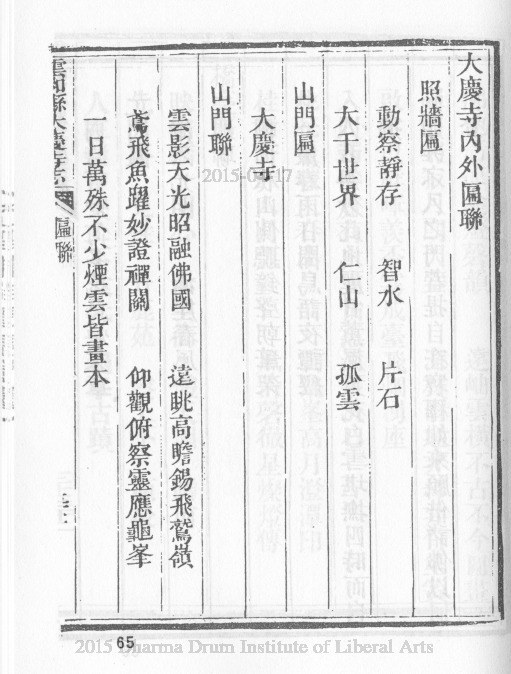 大慶寺內外匾聯
照牆匾
動察靜存 智水 片石
大千世界 仁山 孤雲
山門匾
大慶寺
山門聯
雲影天光昭融佛國 遠眺高瞻錫飛鷲嶺
鳶飛魚躍妙證禪關 仰觀俯察靈應龜峯
一日萬殊不少煙雲皆畫本
匾聯
2015-04-17
65
2015 Dharma Drum Institute of Liberal Arts